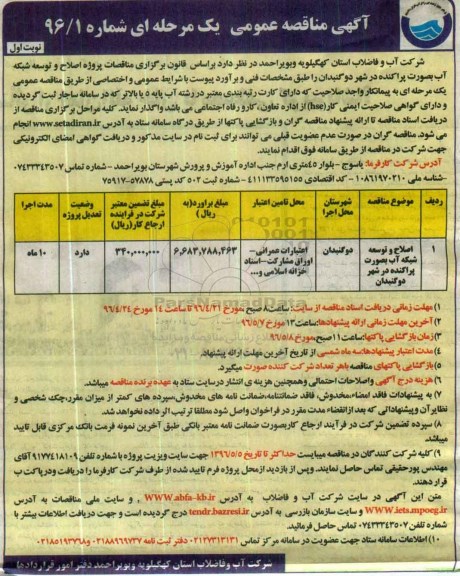 آگهی مناقصه عمومی یک مرحله ای شماره ۹۶/۱
نوبت اول
شرکت آب و فاضلاب استان کهگیلویه وبویراحمد در نظر دارد براساس قانون برگزاری مناقصات پروژه اصلاح و توسعه شبکه
آب بصورت پراکنده در شهر دوگنبدان را طبق مشخصات فنی و برآورد پیوست با شرایط عمومی و اختصاصی از طریق مناقصه عمومی
یک مرحله ای به پیمانکار واجد صلاحیت که دارای کارت رتبه بندی معتبر در رشته آب پایه ۵ یا بالاتر که در سامانه ساجار ثبت گردیده
و دارای گواهی صلاحیت ایمنی کار(hse) از اداره تعاون ، کار و رفاه اجتماعی می باشد واگذار نماید. کلیه مراحل برگزاری مناقصه از
دریافت اسناد مناقصه تا ارائه پیشنهاد مناقصه گران و بازگشایی پاکتها از طریق درگاه سامانه ستاد به آدرس www.setadiran.ir انجام
می شود. مناقصه گران در صورت عدم عضویت قبلی می توانند برای ثبت نام در سایت مذکور و دریافت گواهی امضای الکترونیکی
جهت شرکت در مناقصه از طریق سامانه فوق اقدام نمایند.
آدرس شرکت کارفرما: یاسوج - بلوار ۴۵متری ارم جنب اداره آموزش و پرورش شهرستان بویراحمد - شماره تماس ۰۷۴۳۳۳۴۳۵۰۷
-شناسه ملی ۱۰۸۶۱۹۷۰۲۱۰ - کد اقتصادی ۴۱۱۱۳۳۵۹۵۱۵۵ - شماره ثبت ۵۰۲ کد پستی ۵۷۸۷۸-۷۵۹۱۷
ردیف موضوع مناقصه شهرستان محل اجرا محل تامین اعتبار مبلغ براورد(به ریال) مبلغ تضمین معتبر شرکت در فرآینده ارجاع کار(ریال) وضعیت تعدیل پروژه مدت اجرا
۱ اصلاح و توسعه شبکه آب بصورت پراکنده در شهر دوگنبدان دوگنبدان اعتبارات عمرانی- اوراق مشارکت-اسناد خزانه اسلامی و... ۶,۶۸۳,۷۸۸,۴۶۳ ۳۴۰,۰۰۰,۰۰۰ دارد ۱۰ ماه
ParsNamadData
۱) مهلت زمانی دریافت اسناد مناقصه از سایت: ساعت ۸ صبح مورخ ۹۶/۴/۲۱ تا ساعت ۱۴ مورخ ۹۶/۴/۲۴
۲) آخرین مهلت زمانی ارائه پیشنهادها: ساعت ۱۳ مورخ ۹۶/۵/۷
۳) زمان بازگشایی پاکتها: ساعت ۱۱ صبح مورخ ۹۶/۵/۸
۴) مدت اعتبار پیشنهادها سه ماه شمسی از تاریخ آخرین مهلت ارائه پیشنهاد.
۵) بازگشایی پاکتهای مناقصه با هر تعداد شرکت کننده صورت میگیرد.
۶) هزینه درج آگهی واصلاحات احتمالی وهمچنین هزینه ی انتشار در سایت ستاد به عهده برنده مناقصه میباشد.
۷) به پیشنهادات فاقد امضاء،مخدوش، فاقد ضمانتنامه،ضمانت نامه های مخدوش،سپرده های کمتر از میزان مقرر،چک شخصی و
نظایر آن وپیشنهاداتی که بعد از انقضاء مدت مقرر در فراخوان واصل شود مطلقا ترتیب اثر داده نخواهد شد.
۸) سپرده تضمین شرکت در فرآیند ارجاع کار بصورت ضمانت نامه معتبر بانکی طبق آخرین نمونه فرمت بانک مرکزی قابل تایید
میباشد.
۹) کلیه شرکت کنندگان در مناقصه میبایست حداکثر تا تاریخ ۱۳۹۶/۵/۵ جهت سایت ویزیت پروژه با شماره تلفن ۰۹۱۷۷۴۱۸۱۰۹ آقای
مهندس پورحقیقی تماس حاصل نمایند. وپس از بازدید از محل پروژه فرم تایید شده از طرف شرکت کارفرما را دریافت ودرپاکت ب
قرار دهند.
متن این آگهی در سایت شرکت آب و فاضلاب به آدرس www.abfa-kb.ir ، و سایت ملی مناقصات به آدرس
www.iets.mpoeg.ir و سایت سازمان بازرسی به آدرس tendr.bazresi.ir درج گردیده است و جهت دریافت اطلاعات بیشتر با
شماره تلفن ۰۷۴۳۳۳۴۳۵۰۷ تماس حاصل فرمائید.
۱۰) اطلاعات سامانه ستاد جهت عضویت در سامانه مرکز تماس ۰۲۱۲۷۳۱۳۱۳۱ دفتر ثبت نامه ۰۲۱۸۸۹۶۹۷۳۷ و ۰۲۱۸۵۱۹۳۷۶۸
شرکت آب وفاضلاب استان کهگیلویه وبویراحمد دفتر امور قراردادها